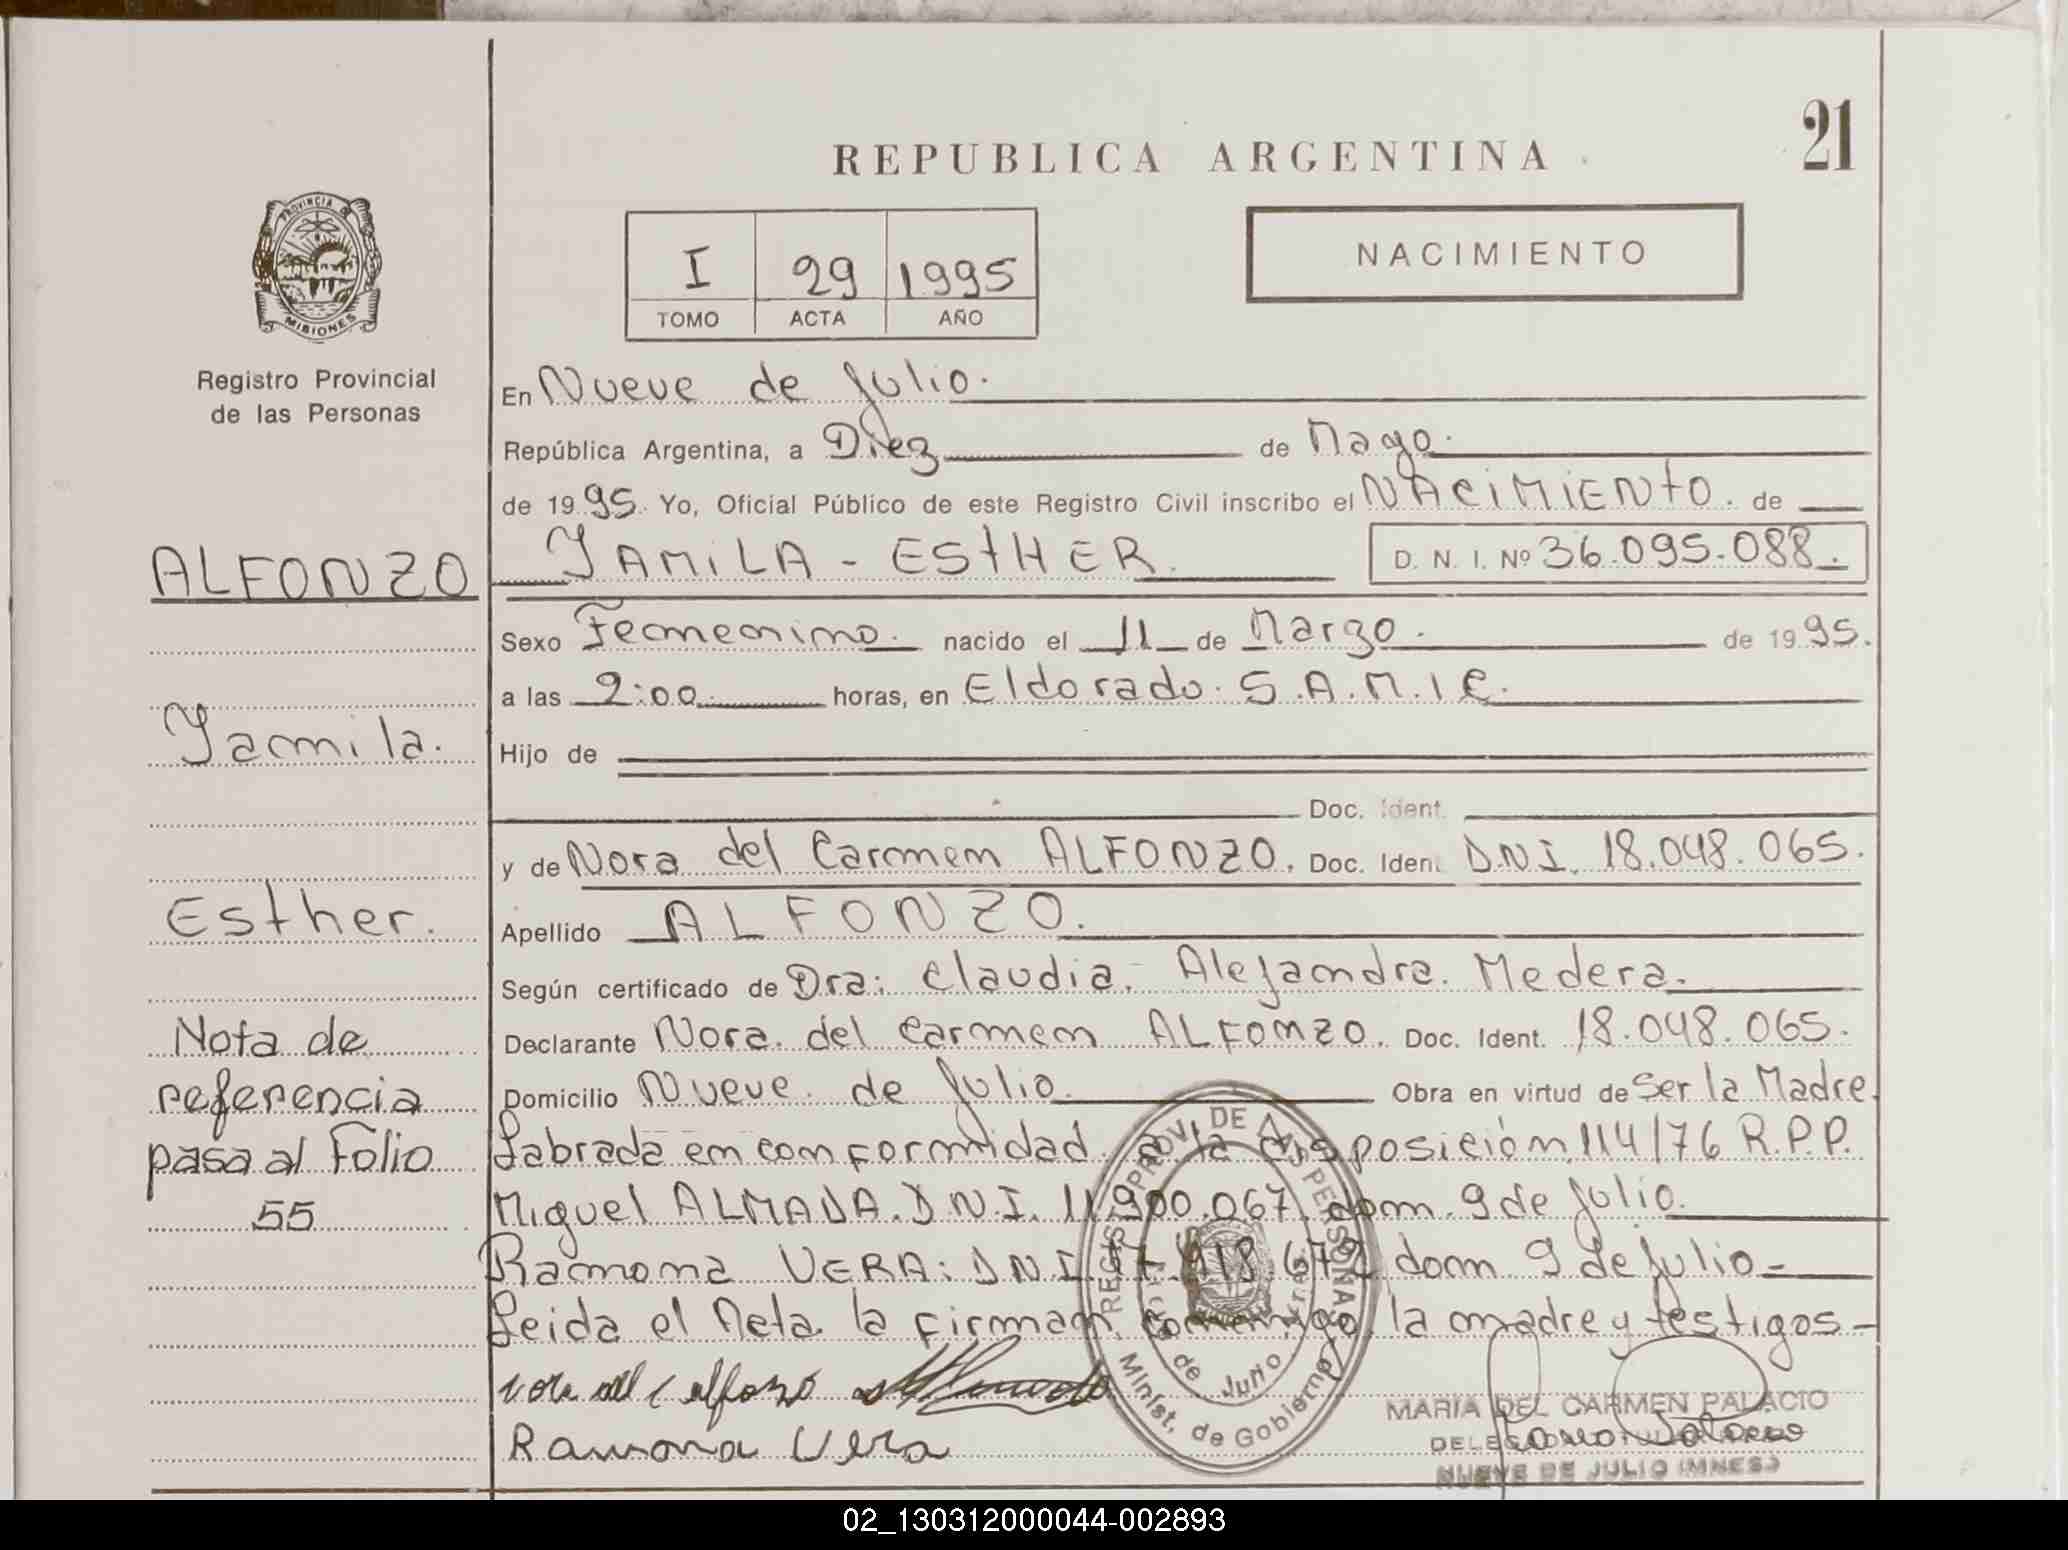 REPUBLICA ARGENTINA
21
PROVINCIA DE
MISIONES
Registro Provincial
de las Personas
I 29 1995
TOMO ACTA AÑO
NACIMIENTO
En Nueve de Julio.
República Argentina, a Diez de Mayo.
de 1995. Yo, Oficial Público de este Registro Civil inscribo el NACIMIENTO. de
ALFONZO
YAMILA - ESTHER. D. N. I. Nº 36.095.088.
Sexo Femenino. nacido el 11 de Marzo. de 1995.
a las 2:00 horas, en Eldorado. S.A.M.I.C.
Yamila.
Hijo de
Doc. Ident.
y de Nora del Carmen ALFONZO. Doc. Ident. D.N.I. 18.048.065.
Esther.
Apellido ALFONZO.
Según certificado de Dra: Claudia. Alejandra. Medera.
Declarante Nora del Carmen ALFONZO. Doc. Ident. 18.048.065.
Domicilio Nueve de Julio. Obra en virtud de Ser la Madre.
Nota de
referencia
pasa al Folio
55
Labrada en conformidad a la disposición 114/76 R.P.P.
Miguel ALMADA. D.N.I. 11.900.067. dom. 9 de Julio.
Ramona VERA: DNI. dom 9 de Julio-
Leida el Acta la firman conmigo la madre y testigos-
Nora del C Alfonzo
Ramona Vera
REGIST. PROV. DE LAS PERSONAS
Minist. de Gobierno
de Julio
MARIA DEL CARMEN PALACIO
NUEVE DE JULIO (MNES)
02_130312000044-002893